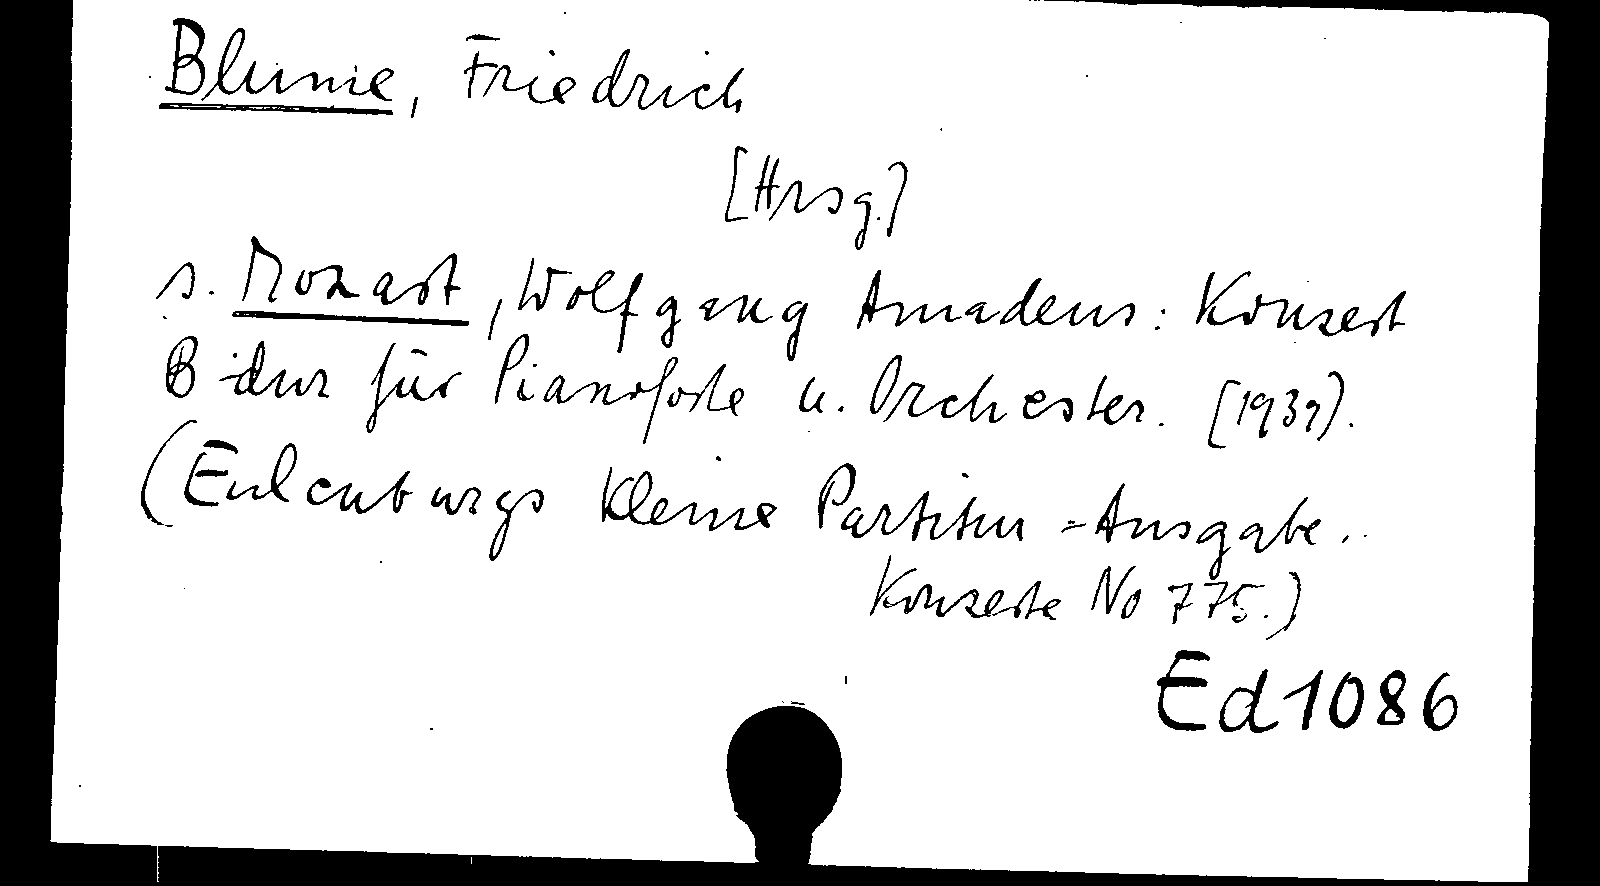 Blume, Friedrich
[Hrsg.]
s. Mozart, Wolfgang Amadeus: Konzert
B-dur für Pianoforte u. Orchester. [1939].
(Eulenburgs kleine Partitur-Ausgabe..
Konzerte No 775.)
Ed 1086